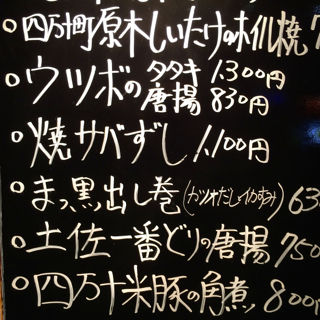 ○四万十町原木しいたけのホイル焼 7
○ウツボのタタキ 1.300円
唐揚 830円
○焼サバずし 1,100円
○まっ黒出し巻(カツオだし、イカすみ) 63
○土佐一番どりの唐揚 750
○四万十米豚の角煮 800円